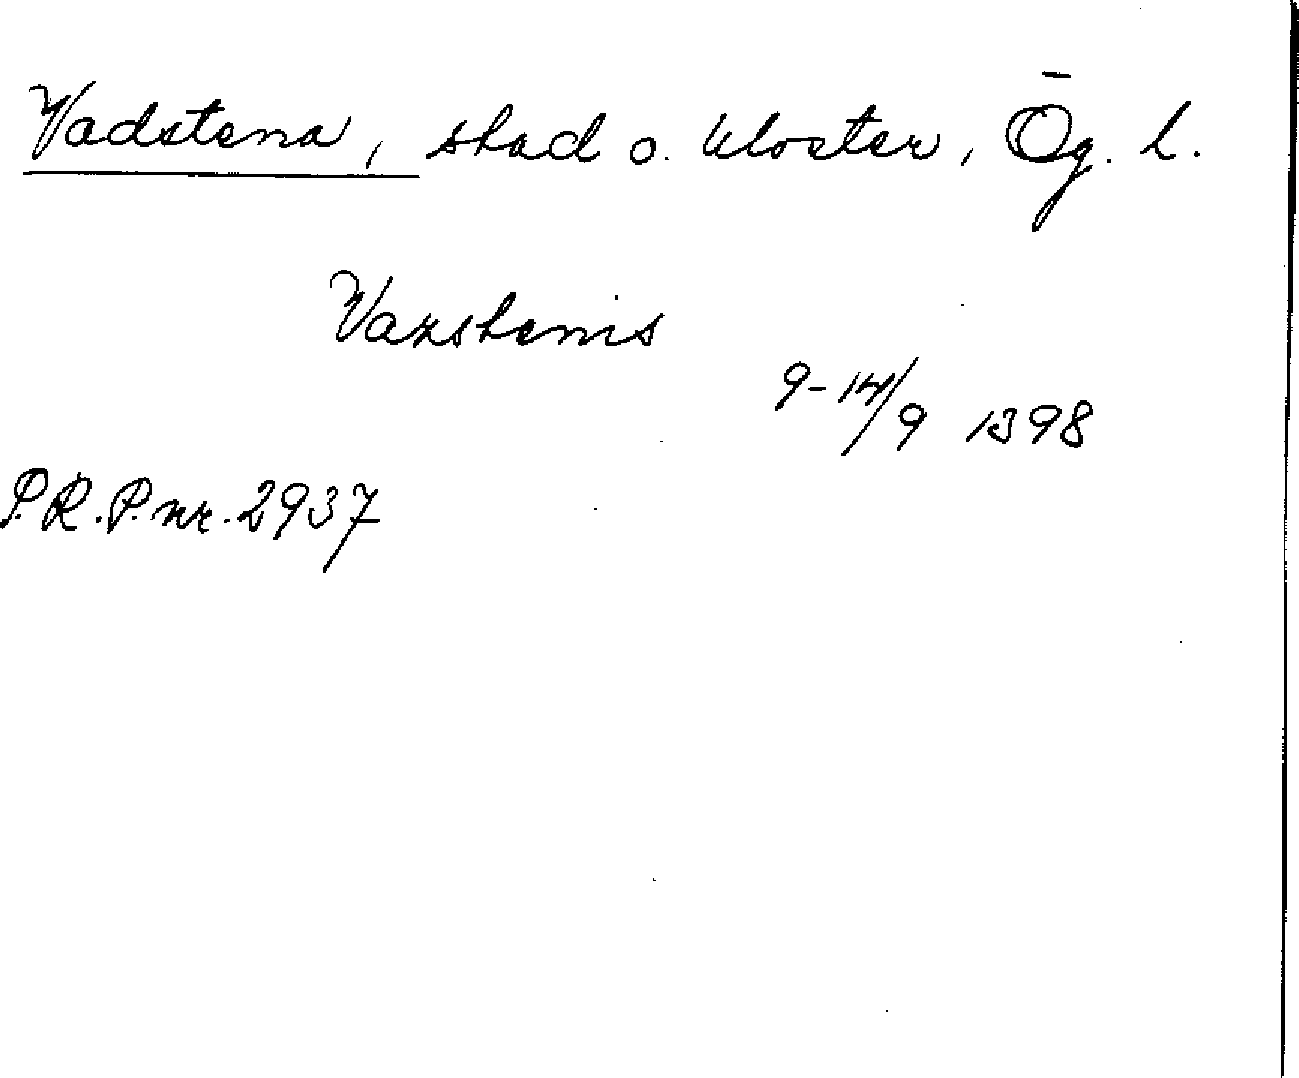 Vadstena, stad o. kloster, Ög. l.
Vazstenis
9-14/9 1398
P.R.P. nr. 2937